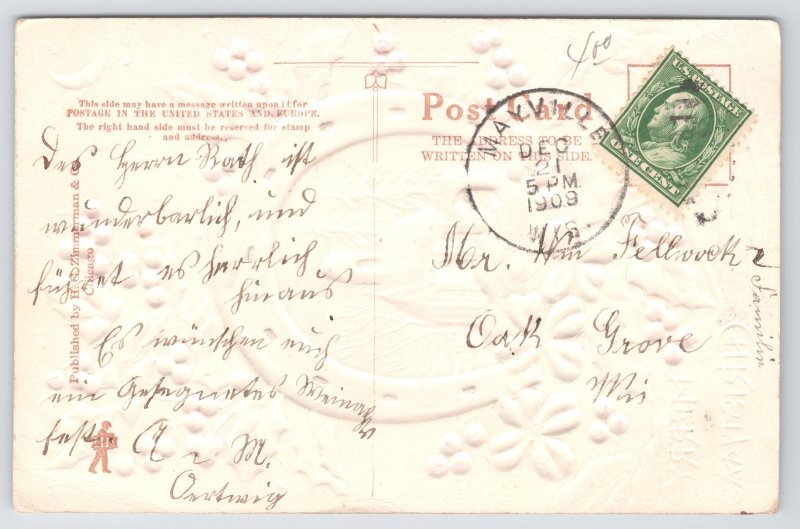 This side may have a message written upon it for
POSTAGE IN THE UNITED STATES AND EUROPE.
The right hand side must be reserved for stamp
and address.
Des Herrn Rath ist
wunderbarlich, und
führet es herrlich
hinaus
Es wünschen euch
ein Gesegnetes Weinachts
fest. A &
M.
Oertwig
Published by H.S. Zimmerman & Co.
Chicago
Post Card
THE ADDRESS TO BE
WRITTEN ON THIS SIDE.
400
MAYVILLE
DEC
21
5 PM
1909
WIS.
U.S. POSTAGE
ONE CENT
Mr. Wm Fellwock &
Familie
Oak Grove
Wis